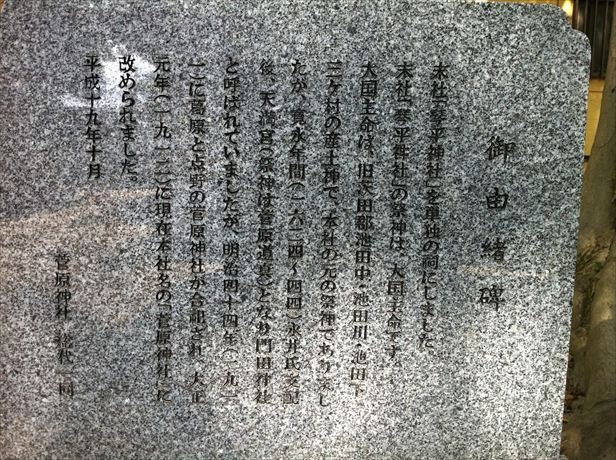 御由緒碑
末社「琴平神社」を単独の祠にしました。
末社「琴平神社」の祭神は、大国主命です。
大国主命は、旧茨田郡池田中・池田川・池田下
三ヶ村の産土神で、本社の元の祭神でありまし
たが、寛永年間(一六二四~四四)永井氏支配
後、天満宮(祭神は菅原道真)となり門田神社
と呼ばれていましたが、明治四十四年(一九一
一)に菅原と点野の菅原神社が合祀され、大正
元年(一九一二)に現在本社名の「菅原神社」に
改められました。
平成十九年十月
菅原神社 総代一同